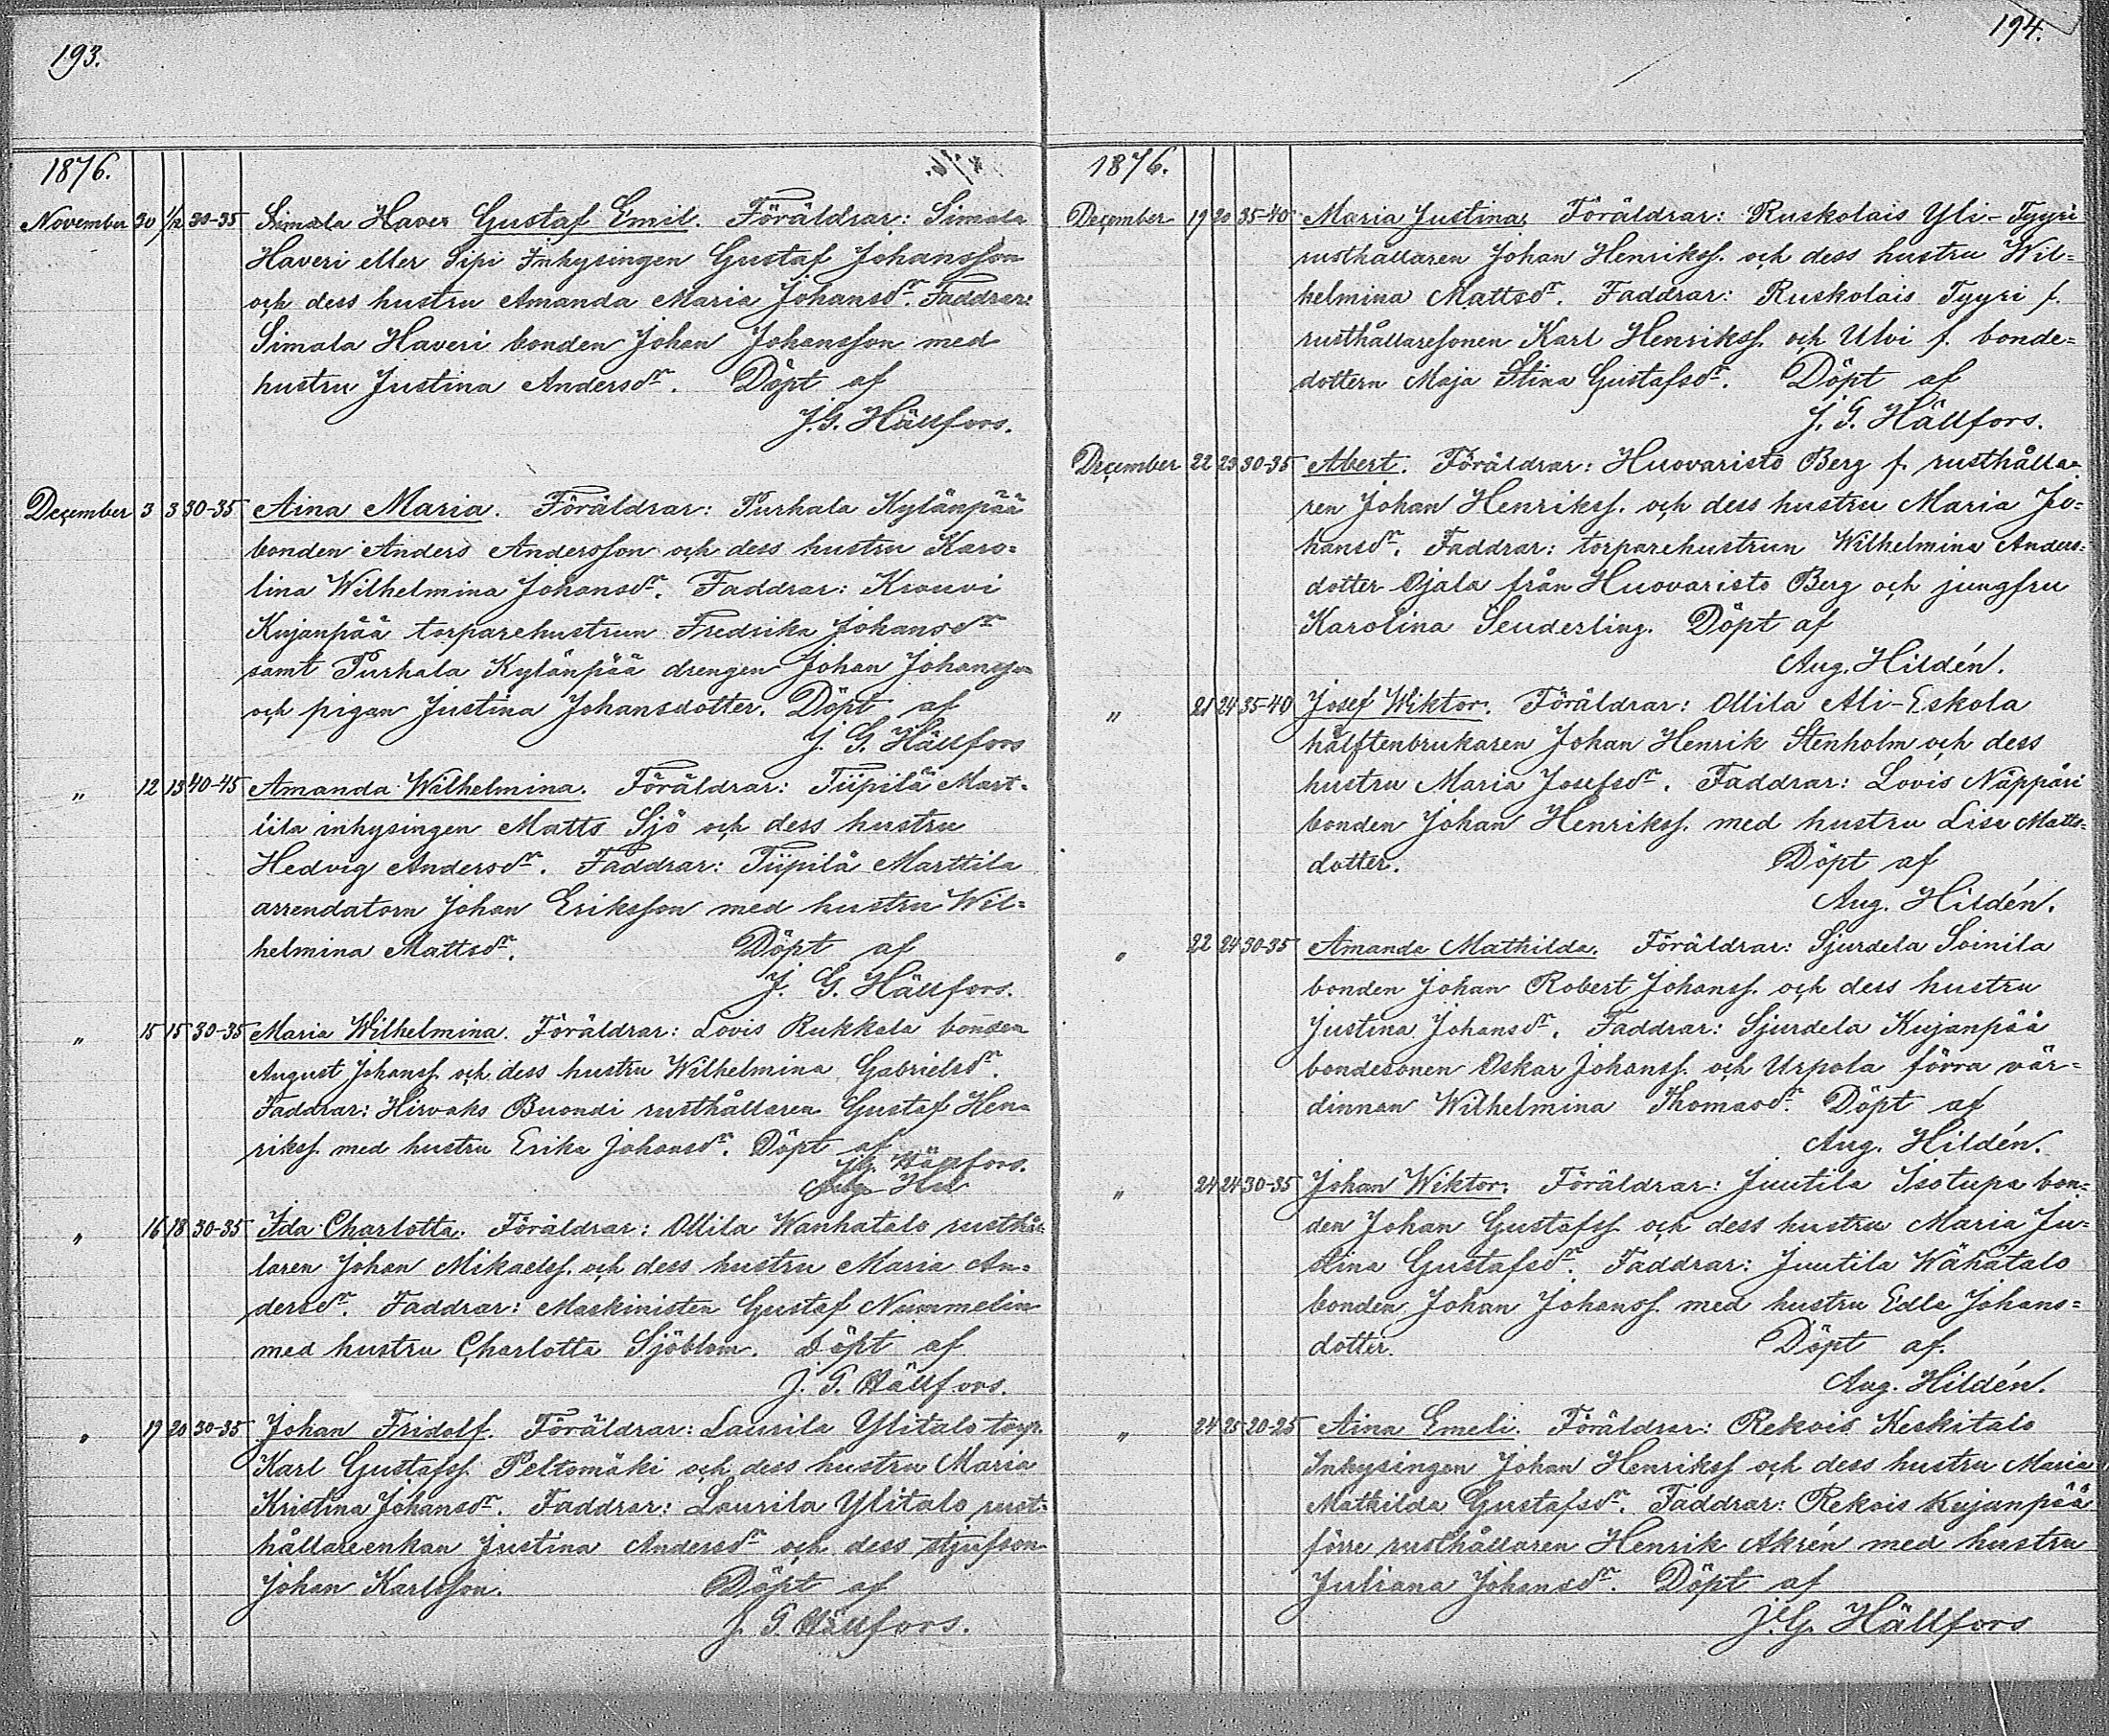 193.
1876.
November 30 1/12 30-35 Simala Haver Gustaf Emil. Föräldrar: Simala
Haveri eller Sipi Inhysingen Gustaf Johansson
och dess hustru Amanda Maria Johansdr. Faddrar:
Simala Haveri bonden Johan Johansson med
hustru Justina Andersdr. Döpt af
J. G. Hällfors.
December 3 3 30-35 Aina Maria. Föräldrar: Purhala Kylänpää
bonden Anders Andersson och dess hustru Karo=
lina Wilhelmina Johansdr. Faddrar: Krauvi
Kujanpää torparehustrun Fredrika Johansdr
samt Purhala Kylänpää drengen Johan Johansson
och pigan Justina Johansdotter. Döpt af
J. G. Hällfors
„ 12 13 40-45 Amanda Wilhelmina. Föräldrar: Tiipilä Mart=
tila inhysingen Matts Sjö och dess hustru
Hedvig Andersdr. Faddrar: Tiipilä Marttila
arrendatorn Johan Eriksson med hustru Wil=
helmina Mattsdr. Döpt af
J. G. Hällfors.
„ 15 15 30-35 Maria Wilhelmina. Föräldrar: Lovis Rukkala bonden
August Johanss. och dess hustru Wilhelmina Gabrielsdr.
Faddrar: Hirvoks Buondi rusthållaren Gustaf Hen=
rikss. med hustru Erika Johansdr. Döpt af
J.G. Hällfors.
„ 16 18 30-35 Ida Charlotta. Föräldrar: Ollila Wanhatalo rusthål=
laren Johan Mikaelss. och dess hustru Maria An=
dersdr. Faddrar: Maskinisten Gustaf Nummelin
med hustru Charlotta Sjöblom. Döpt af
J. G. Hällfors.
„ 19 20 30-35 Johan Fridolf. Föräldrar: Laurila Ylitalo torp.
Karl Gustafss. Peltomäki och dess hustru Maria
Kristina Johansdr. Faddrar: Laurila Ylitalo rust=
hållareenkan Justina Andersdr och dess stjufson
Johan Karlsson. Döpt af
J. G. Hällfors.
194.
1876.
December 19 20 35-40 Maria Justina. Föräldrar: Ruskolais Yli-Tyyri
rusthållaren Johan Henrikss. och dess hustru Wil=
helmina Mattsdr. Faddrar: Ruskolais Tyyri f.
rusthållaresonen Karl Henrikss. och Ulvi f. bonde=
dottern Maja Stina Gustafsdr. Döpt af
J. G. Hällfors.
December 22 23 30-35 Abert. Föräldrar: Huovaristo Berg f. rusthålla=
ren Johan Henrikss. och dess hustru Maria Jo=
hansdr. Faddrar: torparehustrun Wilhelmina Anders=
dotter Ojala från Huovaristo Berg och jungfru
Karolina Seuderling. Döpt af
Aug. Hildén.
„ 21 24 35-40 Josef Wiktor. Föräldrar: Ollila Ali-Eskola
hälftenbrukaren Johan Henrik Stenholm och dess
hustru Maria Josefsdr. Faddrar: Lovis Näppäri
bonden Johan Henrikss. med hustru Lisa Matts=
dotter. Döpt af
Aug. Hildén.
„ 22 24 30-35 Amanda Mathilda. Föräldrar: Sjurdela Soinila
bonden Johan Robert Johanss. och dess hustru
Justina Johansdr. Faddrar: Sjurdela Kujanpää
bondesonen Oskar Johanss. och Urpola förra vär=
dinnan Wilhelmina Thomasdr. Döpt af
Aug. Hildén.
„ 24 24 30-35 Johan Wiktor. Föräldrar: Juutila Isotupa bon=
den Johan Gustafss. och dess hustru Maria Ju=
stina Gustafsdr. Faddrar: Juutila Wähätalo
bonden Johan Johanss. med hustru Edla Johans=
dotter. Döpt af.
Aug. Hildén.
„ 24 25 20-25 Aina Emeli. Föräldrar: Rekois Keskitalo
Inhysingen Johan Henrikss och dess hustru Maria
Mathilda Gustafsdr. Faddrar: Rekois Kujanpää
förre rusthållaren Henrik Akrén med hustru
Juliana Johansdr. Döpt af
J. G. Hällfors